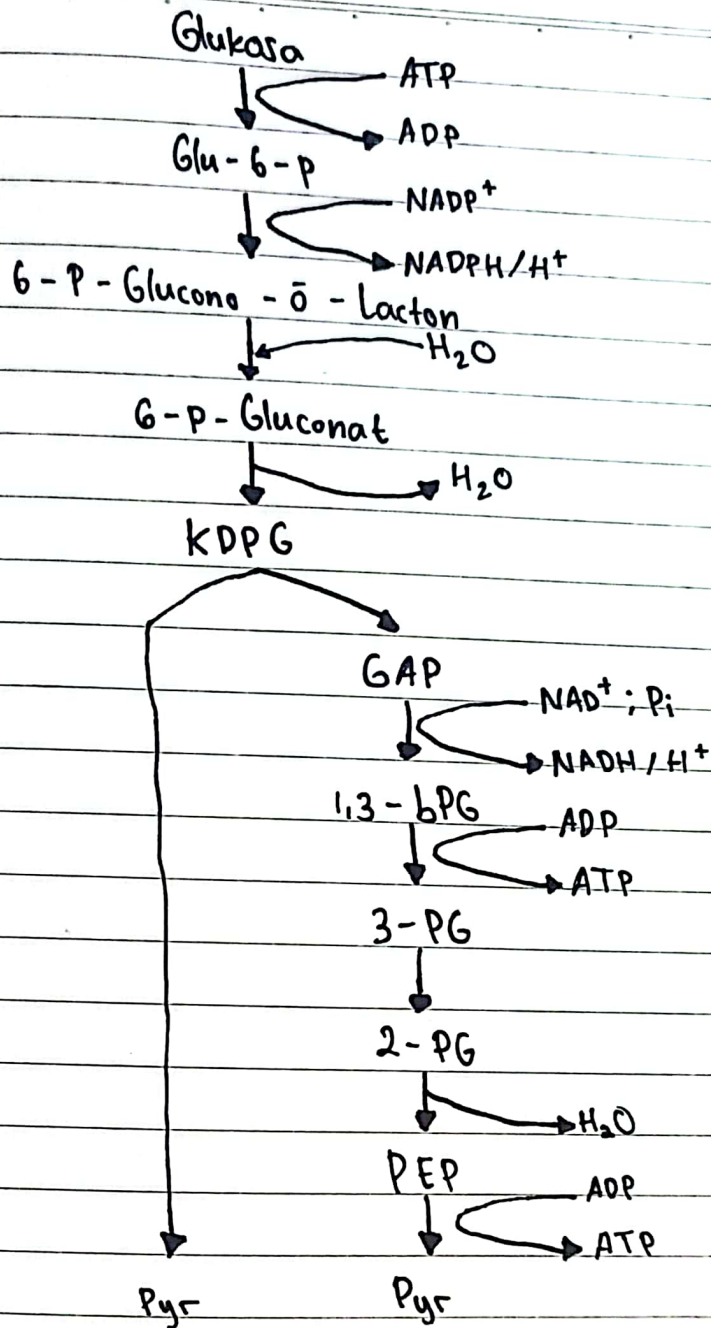 Glukosa
ATP
ADP
Glu-6-p
NADP⁺
NADPH/H⁺
6-P-Glucono-ō-Lacton
H₂O
6-p-Gluconat
H₂O
KDPG
GAP
NAD⁺; Pi
NADH/H⁺
1,3-bPG
ADP
ATP
3-PG
2-PG
H₂O
PEP
ADP
ATP
Pyr
Pyr